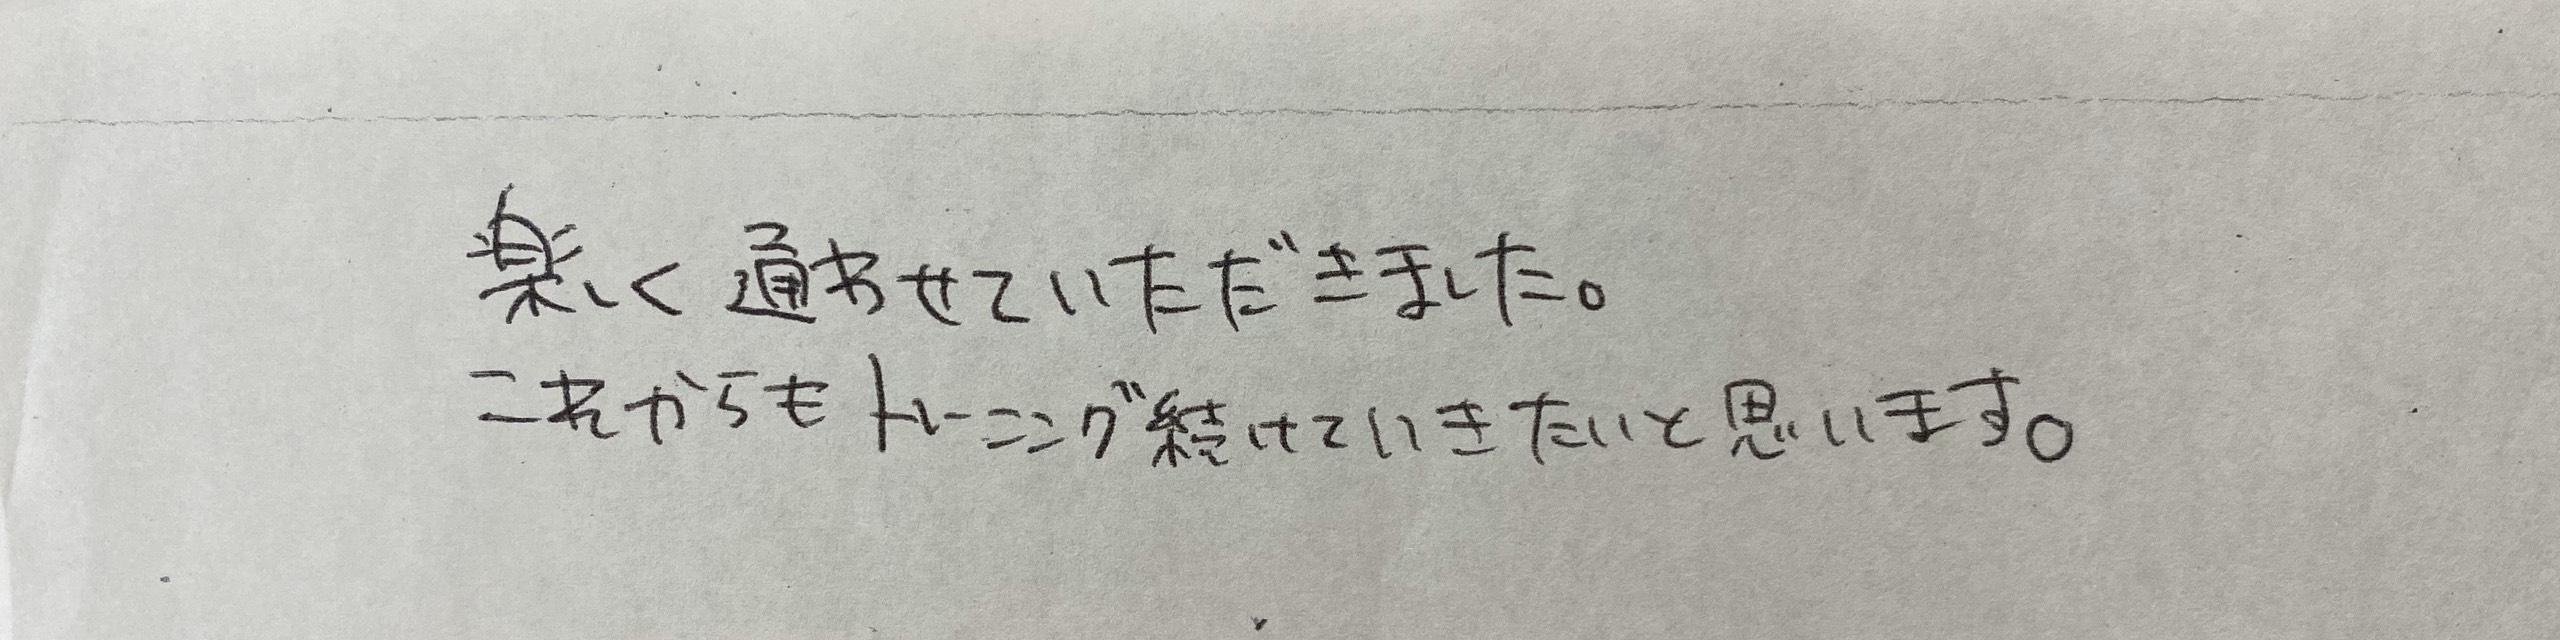 楽しく通わせていただきました。
これからもトレーニング続けていきたいと思います。